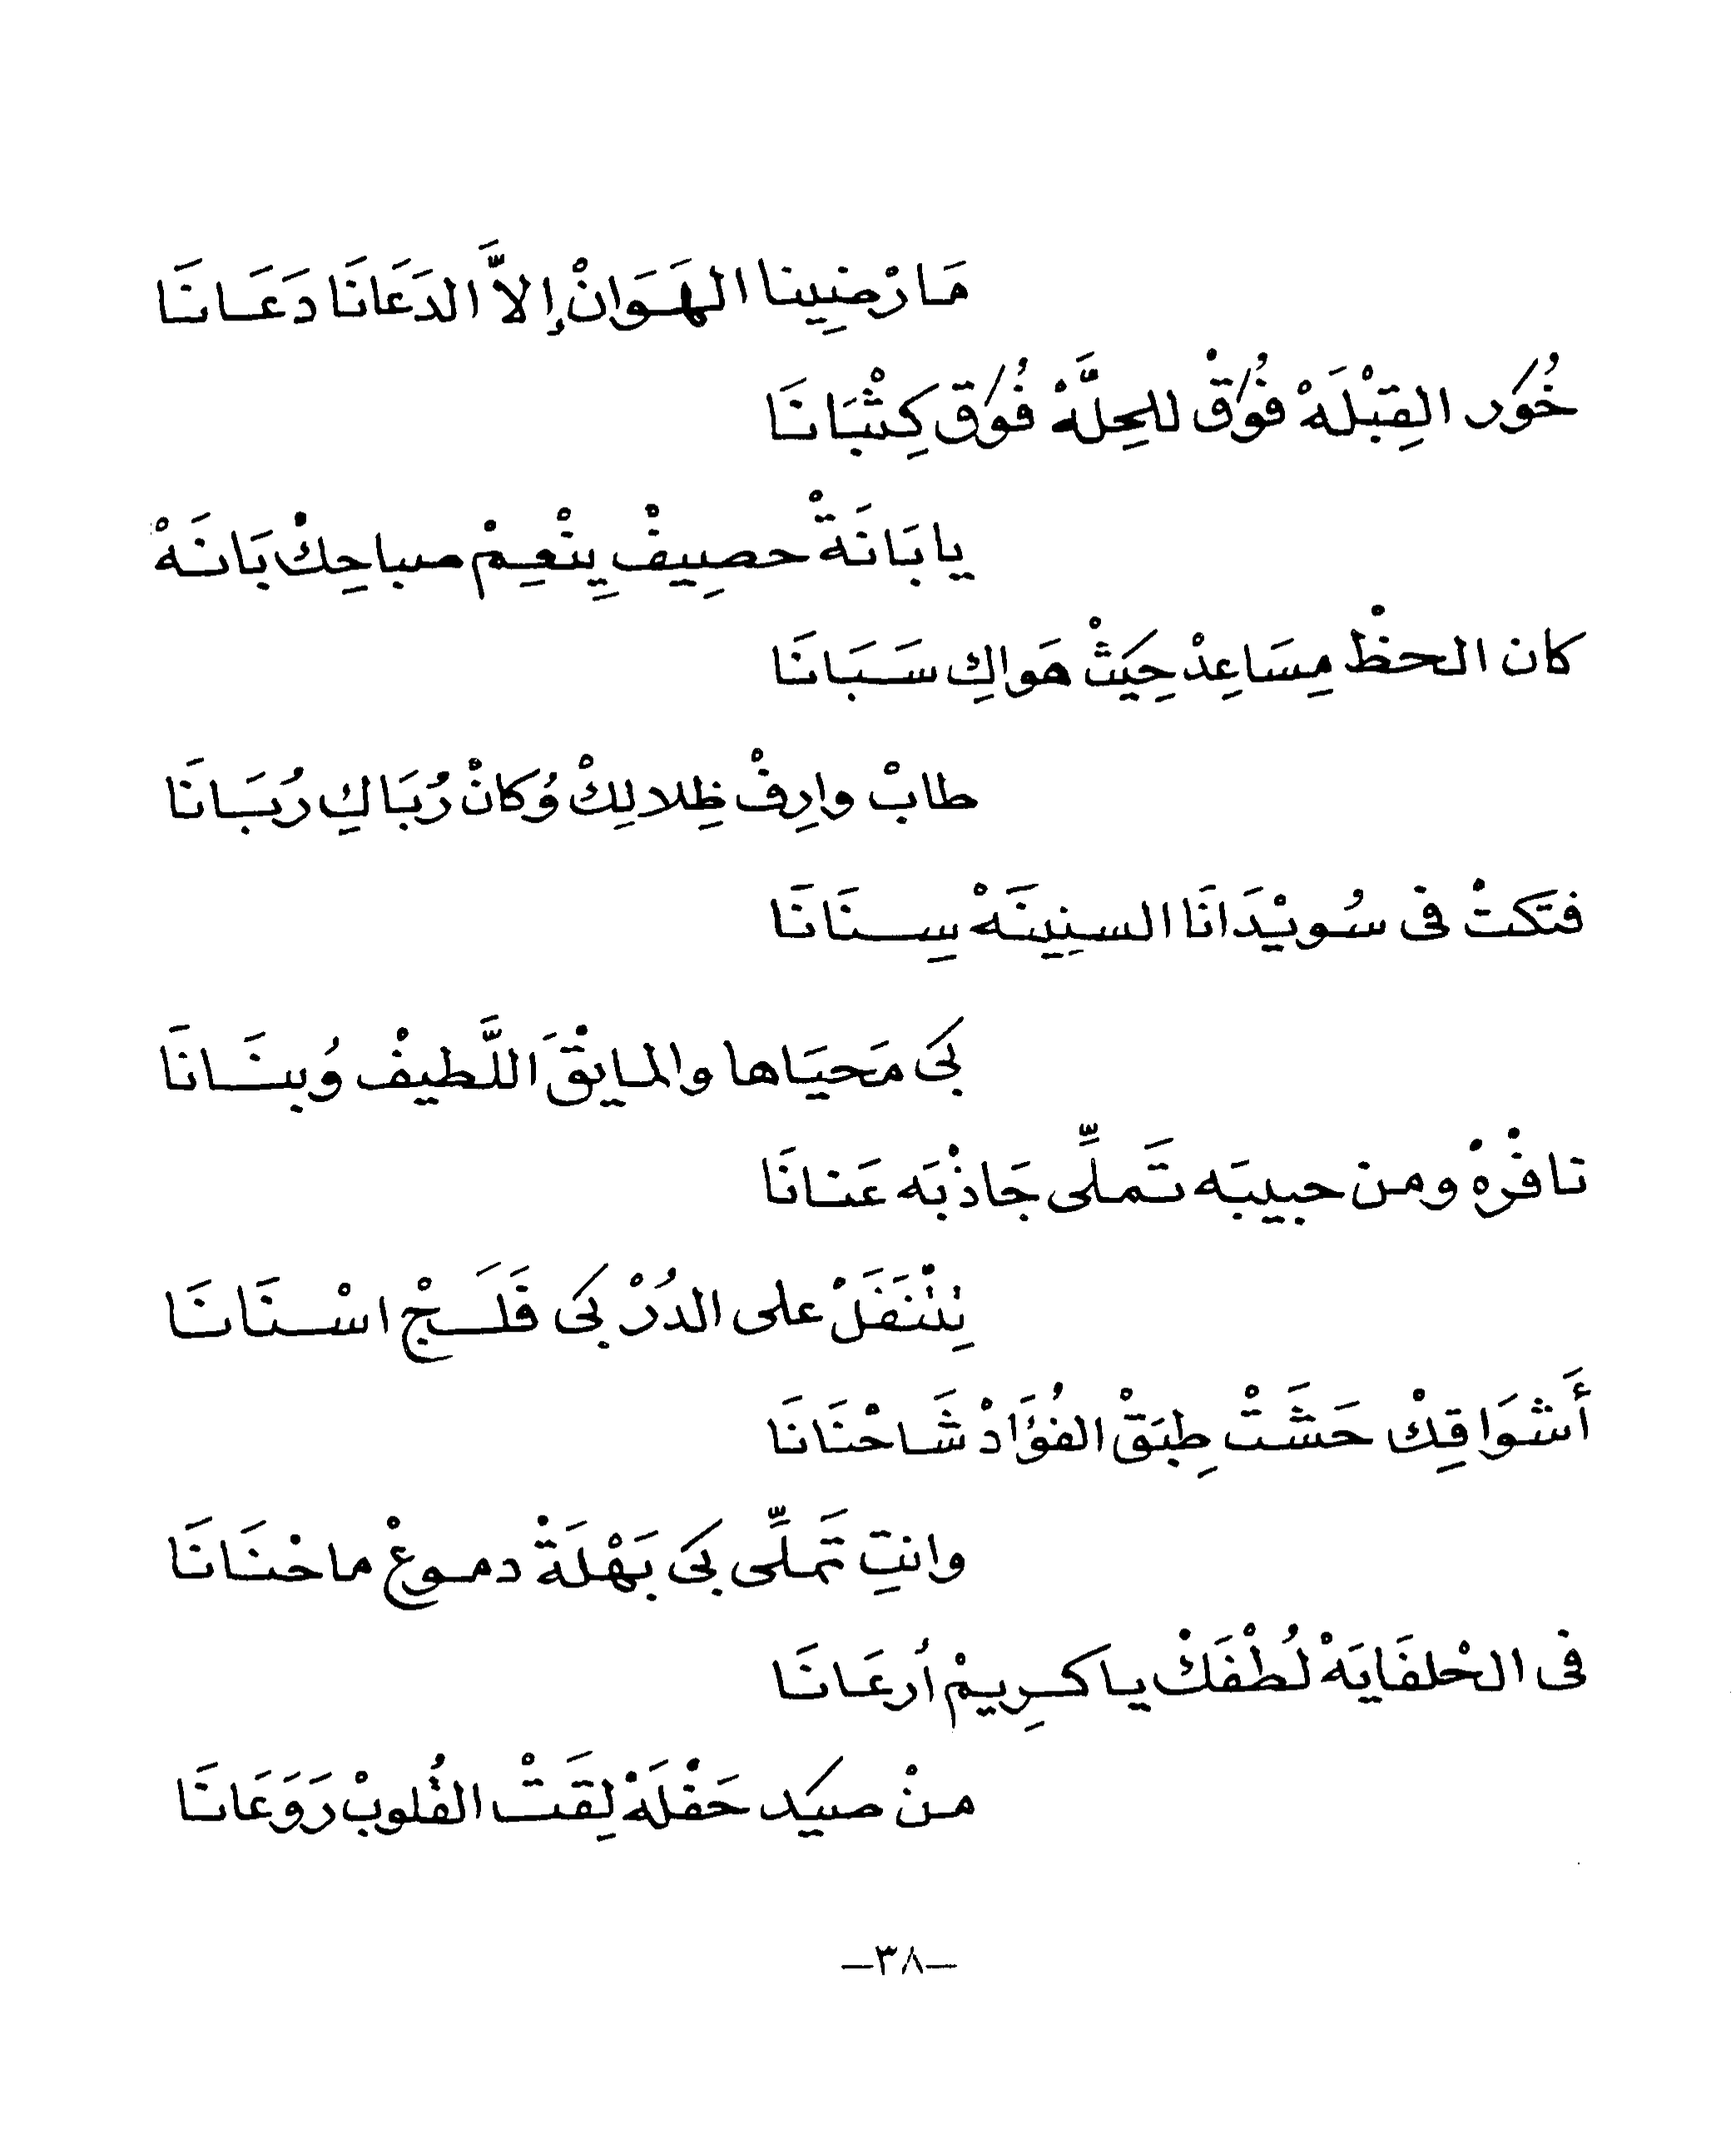 مَا رْضِينا الهَوَانْ إلاَّ الدَعَانَا دَعَانَا
خُور القِبْلَهْ فُوقْ للحِلَّهْ فُوق كِثْبَانَا
يا بَانَةْ حصِيفْ يِنْعِمْ صباحِكْ بَانَهْ
كان الحظْ مِسَاعِدْ حِيَثْ هَواكِ سَبَانَا
طابْ وارِفْ ظِلالِكْ وُكانْ رُبَاكِ رُبَانَا
فتَكتْ فى سُويْدَانَا السنِينَهْ سِنَانَا
بَى مَحيَاها والمايقَ اللَّطيفْ وُبنَانَا
نافْرهْ ومن حبيبَه تَملِّى جَاذْبَه عَنانَا
نِتْنَفَلْ على الدُرْ بَى فَلَجْ اسْنَانَا
أَشوَاقِكْ حَشَتْ طِبَقْ الفُؤَادْ شَاحْنَانَا
وانتِ تَملِّى بَى بَهْلَةْ دموعْ ماحْنَانَا
فى الحْلفَايَهْ لُطْفَكْ يا كرِيمْ اُرعَانَا
منْ صيَد حَفْلَهْ لِقَتْ القُلوبْ رَوَعَانَا
—٣٨—